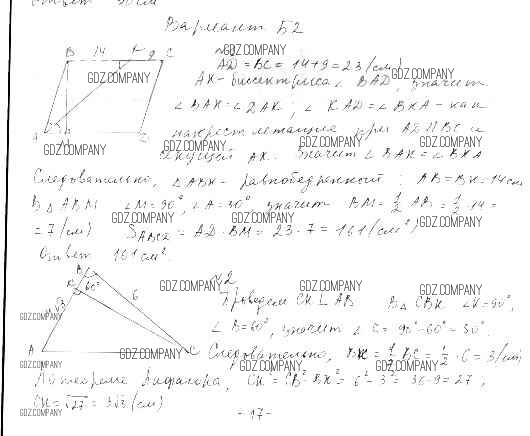 Ответ 30 см
Вариант Б2
№1
B 14 K 9 C
AD = BC = 14 + 9 = 23 (см)
AK - биссектриса ∠BAD, значит
∠BAK = ∠DAK; ∠KAD = ∠BKA - как
накрест лежащие при AD || BC и
секущей AK. Значит ∠BAK = ∠BKA
Следовательно, △ABK - равнобедренный: AB = BK = 14 см
В △ABM ∠M = 90°, ∠A = 30°, значит BM = 1/2 AB = 1/2 · 14 =
= 7 (см) SABCD = AD · BM = 23 · 7 = 161 (см²)
Ответ 161 см².
№2
B K 60° 6 A C
Проведем CK ⊥ AB В △CBK ∠K = 90°,
∠B = 60°, значит ∠C = 90° - 60° = 30°.
Следовательно, BK = 1/2 BC = 1/2 · 6 = 3 (см)
По теореме Пифагора, CK² = CB² - BK² = 6² - 3² = 36 - 9 = 27,
CK = √27 = 3√3 (см)
- 17 -
GDZ.COMPANY